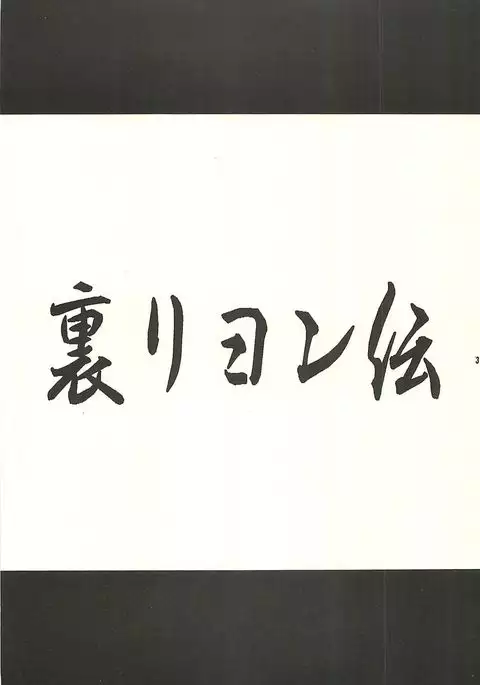 裏リヨン伝
3